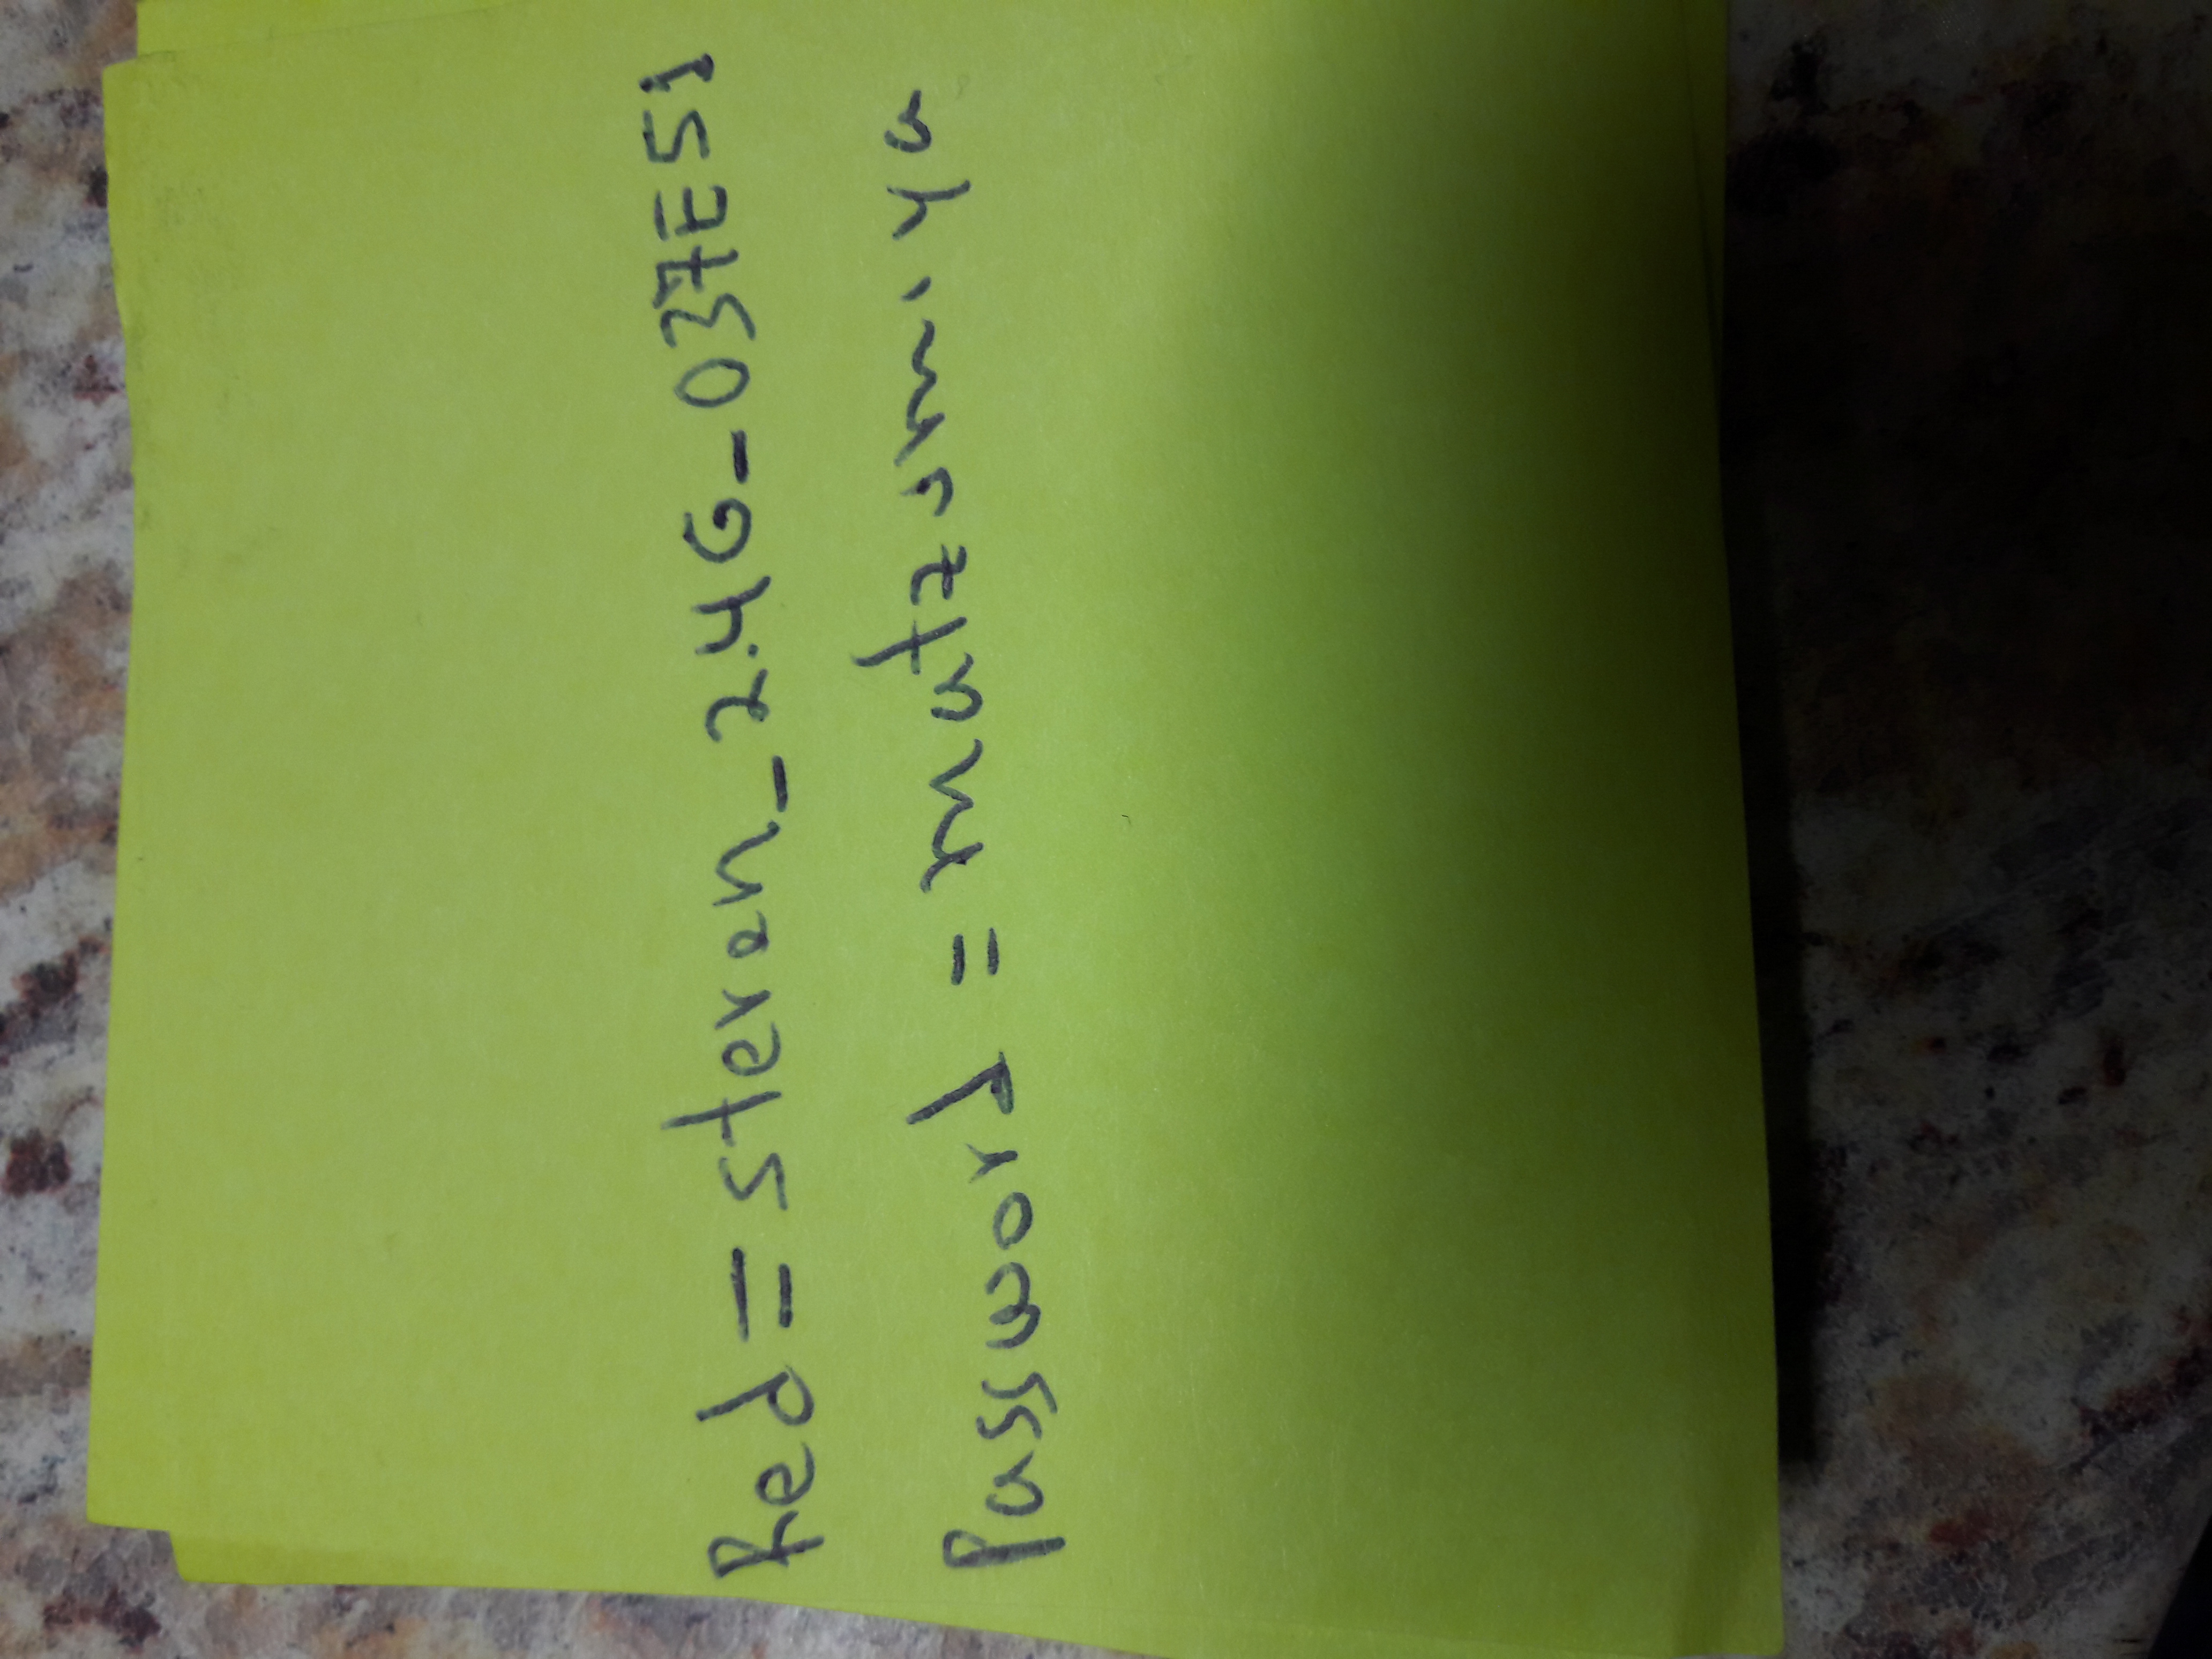 Red = steren_2.4G_037E51
Password = matzumiya